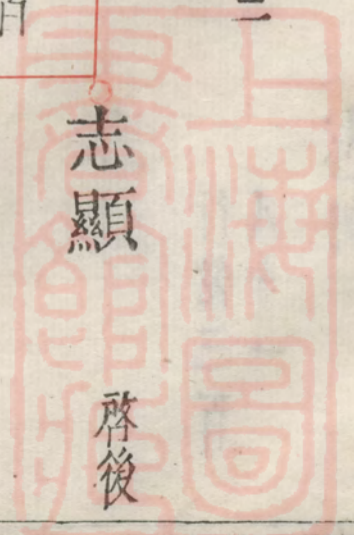 二
志顯
啓後
上海圖書館藏